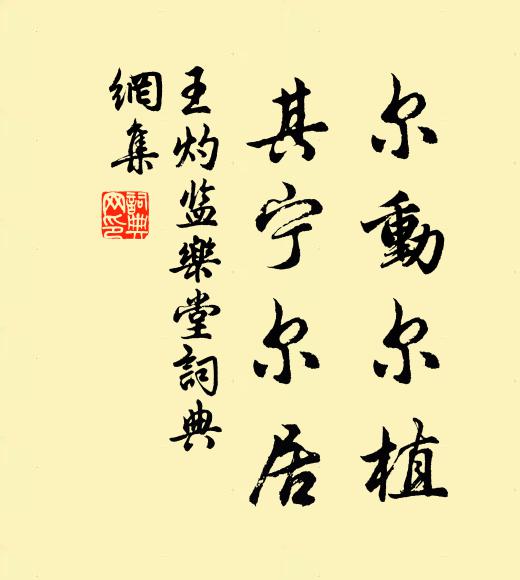 尔動尔植
其宁尔居
王灼监樂堂詞典
網集
詞典网印